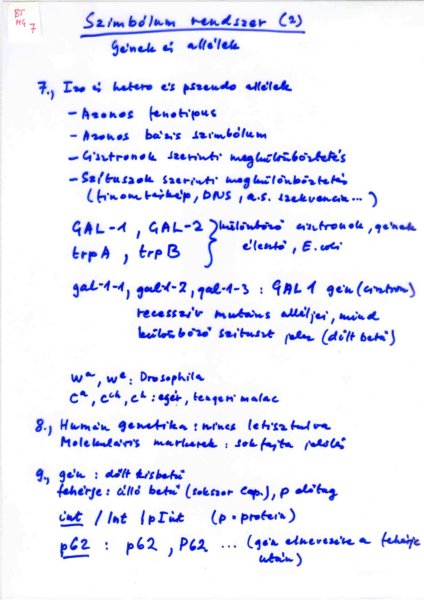 BT
HG 7
Szimbólum rendszer (2)
Gének és allélek
7., Izo és hetero és pszeudo allélek
- Azonos fenotípus
- Azonos bázis szimbólum
- Cisztronok szerinti megkülönböztetés
- Szituszok szerinti megkülönböztetés
(finomtérkép, DNS, a.s. szekvencia...)
GAL-1, GAL-2 } különböző cisztronok, gének
trpA, trpB } élesztő, E. coli
gal-1-1, gal-1-2, gal-1-3 : GAL 1 gén (cisztron)
recesszív mutáns alléljei, mind
különböző szituszt jelez (dőlt betű)
wᵃ, wᵉ : Drosophila
cᵃ, cᶜʰ, cʰ : egér, tengeri malac
8., Humán genetika : nincs letisztulva
Molekuláris markerek : sokfajta jelölés
9., gén : dőlt kisbetű
fehérje : álló betű (sokszor Cap.), p előtag
int / Int / pInt (p = protein)
p62 : p62, P62 ... (gén elnevezése a fehérje
után)